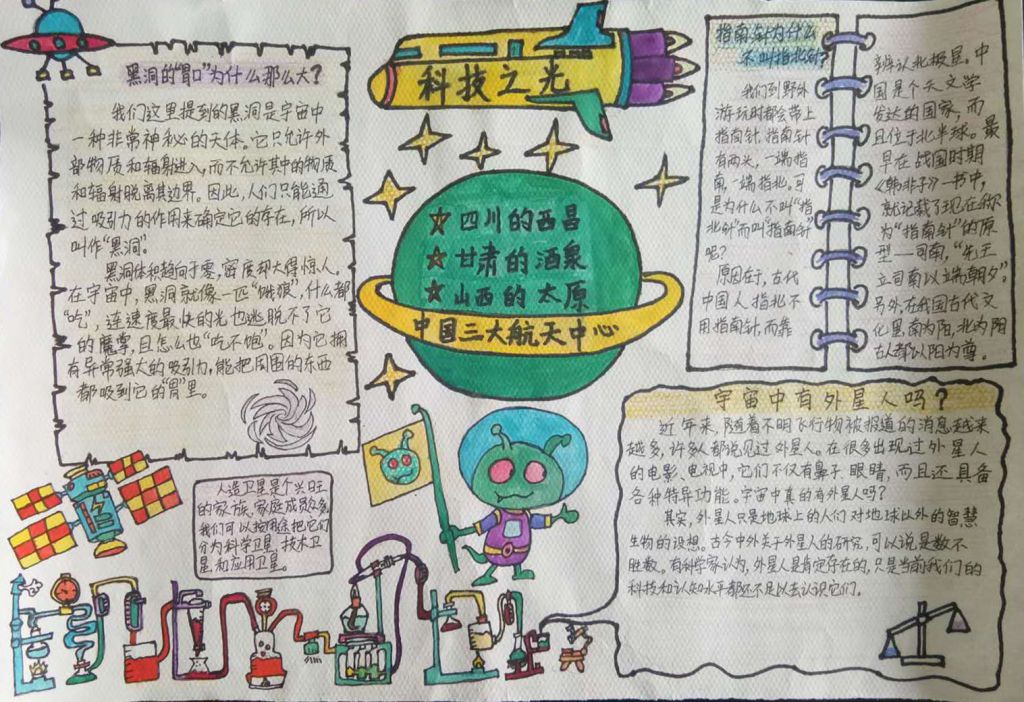 科技之光
黑洞的“胃口”为什么那么大？
我们这里提到的黑洞是宇宙中
一种非常神秘的天体。它只允许外
部物质和辐射进入，而不允许其中的物质
和辐射脱离其边界。因此，人们只能通
过吸引力的作用来确定它的存在，所以
叫作“黑洞”。
黑洞体积趋向于零，密度却大得惊人。
在宇宙中，黑洞就像一匹“饿狼”，什么都
“吃”，连速度最快的光也逃脱不了它
的魔掌，且怎么也“吃不饱”。因为它拥
有异常强大的吸引力，能把周围的东西
都吸到它的“胃”里。
四川的西昌
甘肃的酒泉
山西的太原
中国三大航天中心
指南针为什么
不叫指北针？
我们到野外
游玩时都会带上
指南针，指南针
有两头，一端指
南，一端指北。可
是为什么不叫“指
北针”而叫“指南针”
呢？
原因在于，古代
中国人指北不
用指南针，而靠
辨认北极星。中
国是个天文学
发达的国家，而
且位于北半球。最
早在战国时期
《韩非子》一书中，
就记载了现在称
为“指南针”的原
型——司南，“先王
立司南以端朝夕”。
另外，在我国古代文
化里南为阳，北为阴
古人都以阳为尊。
人造卫星是个兴旺
的家族，家庭成员众多，
我们可以按用途把它们
分为科学卫星、技术卫
星和应用卫星。
宇宙中有外星人吗？
近年来，随着不明飞行物被报道的消息越来
越多，许多人都说见过外星人。在很多出现过外星人
的电影、电视中，它们不仅有鼻子、眼睛，而且还具备
各种特异功能。宇宙中真的有外星人吗？
其实，外星人只是地球上的人们对地球以外的智慧
生物的设想。古今中外关于外星人的研究，可以说是数不
胜数。有科学家认为，外星人是肯定存在的，只是当前我们的
科技和认知水平都还不足以去认识它们。